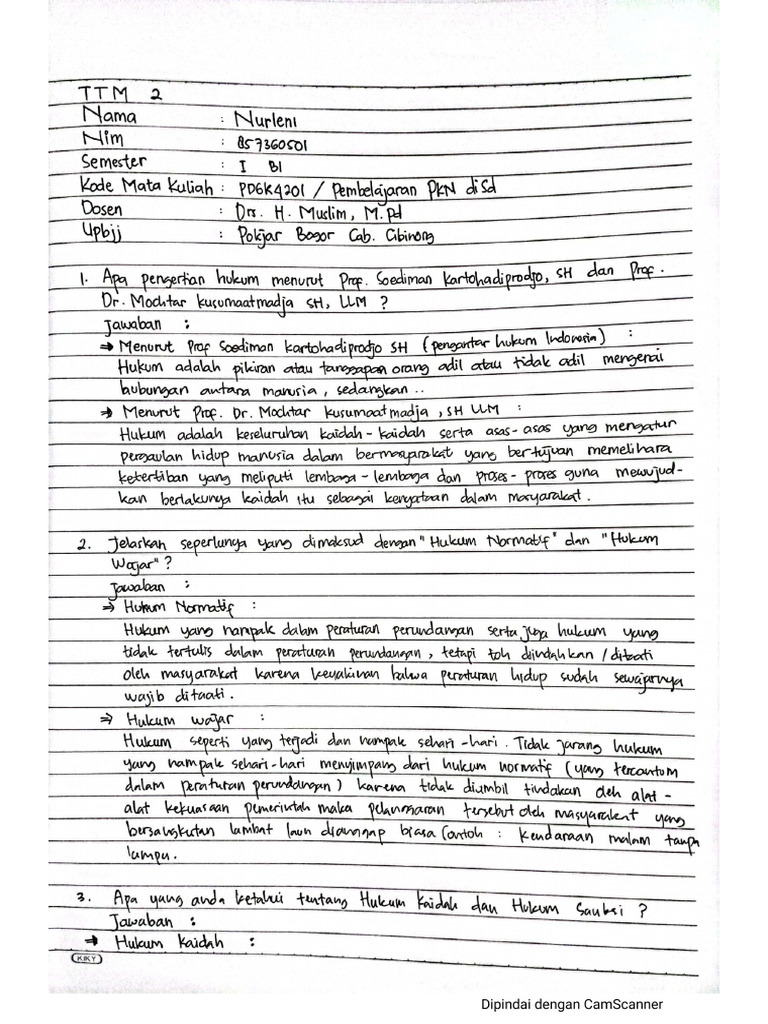 TTM 2
Nama : Nurleni
Nim : 857360501
Semester : I BI
Kode Mata Kuliah : PDGK4201 / Pembelajaran PKN di Sd
Dosen : Drs. H. Muslim, M.pd
Upbjj : Pokjar Bogor Cab. Cibinong
1. Apa pengertian hukum menurut Prof. Soediman Kartohadiprodjo, SH dan Prof.
Dr. Mochtar kusumaatmadja SH, LLM ?
Jawaban :
⇒ Menurut Prof Soediman Kartohadiprodjo SH (pengantar hukum Indonesia) :
Hukum adalah pikiran atau tanggapan orang adil atau tidak adil mengenai
hubungan antara manusia, sedangkan ..
⇒ Menurut Prof. Dr. Mochtar kusumaatmadja, SH LLM :
Hukum adalah keseluruhan kaidah-kaidah serta asas-asas yang mengatur
pergaulan hidup manusia dalam bermasyarakat yang bertujuan memelihara
ketertiban yang meliputi lembaga-lembaga dan proses-proses guna mewujud-
kan berlakunya kaidah itu sebagai kenyataan dalam masyarakat.
2. Jelaskan seperlunya yang dimaksud dengan "Hukum Normatif" dan "Hukum
Wajar"?
Jawaban :
⇒ Hukum Normatif :
Hukum yang nampak dalam peraturan perundangan serta juga hukum yang
tidak tertulis dalam peraturan perundangan, tetapi toh diindahkan / ditaati
oleh masyarakat karena keyakinan bahwa peraturan hidup sudah sewajarnya
wajib ditaati.
⇒ Hukum wajar :
Hukum seperti yang terjadi dan nampak sehari-hari. Tidak jarang hukum
yang nampak sehari-hari menyimpang dari hukum normatif (yang tercantum
dalam peraturan perundangan) karena tidak diambil tindakan oleh alat-
alat kekuasaan pemerintah maka pelanggaran tersebut oleh masyarakat yang
bersangkutan lambat laun dianggap biasa Contoh : Kendaraan malam tanpa
lampu.
3. Apa yang anda ketahui tentang Hukum Kaidah dan Hukum Sanksi ?
Jawaban :
⇒ Hukum Kaidah :
KIKY
Dipindai dengan CamScanner